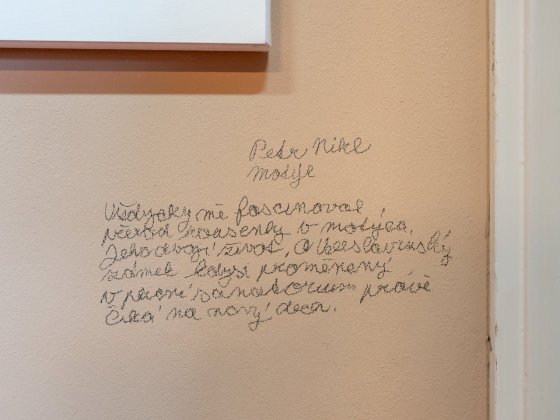 Petr Nikl
Motýl
Vždycky mě fascinoval
přerod housenky v motýla.
Jeho dvojí život. A Veleslavínský
zámek kdysi proměněný
v plicní sanatorium právě
čeká na nový dech.